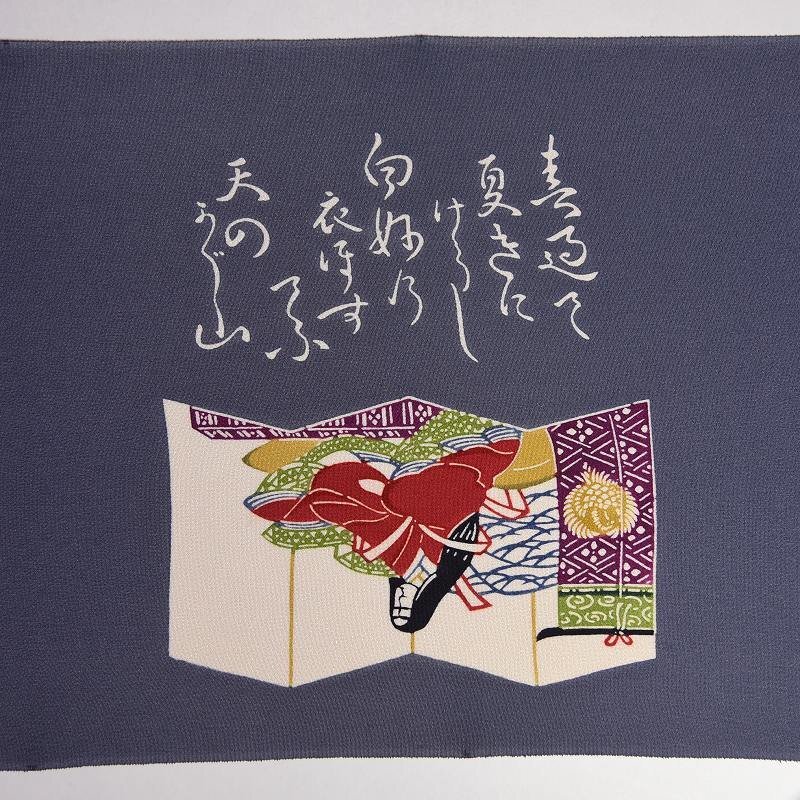 春過て
夏きに
けらし
白妙乃
衣ほす
てふ
天の
かぐ山